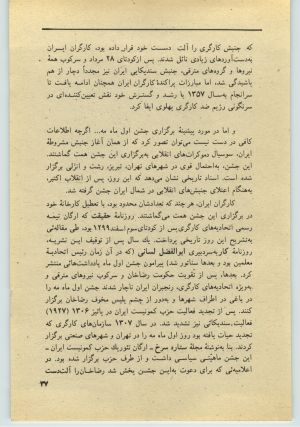 که جنبش کارگری را آلت دست خود قرار داده بود، کارگران ایران
به‌دست‌آوردهای زیادی نائل شدند. پس ازکودتای ۲۸ مرداد و سرکوب همهٔ
نیروها و گروه‌های مترقی، جنبش سندیکایی ایران نیز مجدداً دچار از هم
پاشیدگی شد، اما مبارزات پراکندهٔ کارگران ایران همچنان ادامه یافت تا
سرانجام به‌سال ۱۳۵۷ با رشد و گسترش خود نقش تعیین‌کننده‌ای در
سرنگونی رژیم ضد کارگری پهلوی ایفا کرد.
و اما در مورد پیشینهٔ برگزاری جشن اول ماه مه... اگرچه اطلاعات
کافی در دست نیست می‌توان تصور کرد که از همان آغاز جنبش مشروطهٔ
ایران، سوسیال دموکرات‌های انقلابی به‌برگزاری این جشن همت گماشتند.
این جشن، به‌احتمال قوی در شهرهای تهران، تبریز، رشت و انزلی برگزار
شده است. اسناد تاریخی نشان می‌دهد که این روز، پس از انقلاب اکتبر،
به‌هنگام اعتلای جنبش‌های انقلابی در شمال ایران جشن گرفته شد.
کارگران ایران، هر چند که تعدادشان محدود بود، با تعطیل کارخانهٔ خود
در برگزاری این جشن همت می‌گماشتند. روزنامهٔ حقیقت که ارگان نیمه
رسمی اتحادیه‌های کارگری پس از کودتای سوم اسفند ۱۲۹۹ بود، طی مقاله‌ئی
به‌تشریح این روز تاریخی پرداخت. یك سال پس از توقیف این نشریه،
روزنامهٔ کار به‌سردبیری ابوالفضل لسانی (که در آن زمان رئیس اتحادیهٔ
معلمین بود و بعدها سناتور شد) پیرامون جشن اول ماه یادداشت‌هائی منتشر
کرد. بعدها پس از تقویت حکومت رضاخان و سرکوب نیروهای مترقی و
به‌ویژه اتحادیه‌های کارگری، رنجبران ایران ناچار شدند جشن اول ماه مه را
در باغی در اطراف شهرها و به‌دور از چشم پلیس مخوف رضاخان برگزار
کنند. پس از تجدید فعالیت حزب کمونیست ایران در پائیز ۱۳۰۶ (۱۹۲۷)
فعالیت سندیکائی نیز تشدید شد. در سال ۱۳۰۷ سازمان‌های کارگری که
تجدید حیات یافته بود روز اول ماه مه را در تهران و شهرهای صنعتی برگزار
کردند. بنا به‌نوشتهٔ مجلهٔ ستاره سرخ - ارگان تئوریك حزب کمونیست ایران -
این جشن ماهیتی سیاسی داشت و از طرف حزب برگزار شده بود. در
اعلامیه‌ئی که برای دعوت به‌این جشن پخش شد رضاخان را آلت‌دست
۳۷